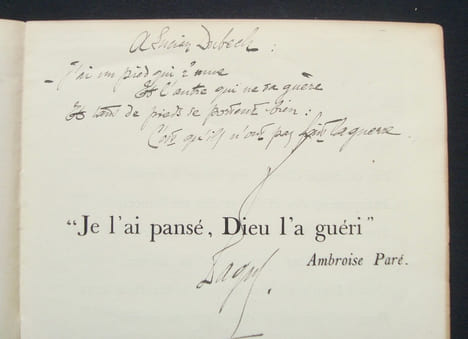 A Lucien Dubech :
J'ai un pied qui r'mue
Et l'autre qui ne va guère
Et tant de pieds se portent bien :
C'est qu'ils n'ont pas fait la guerre.
"Je l'ai pansé, Dieu l'a guéri"
Ambroise Paré.